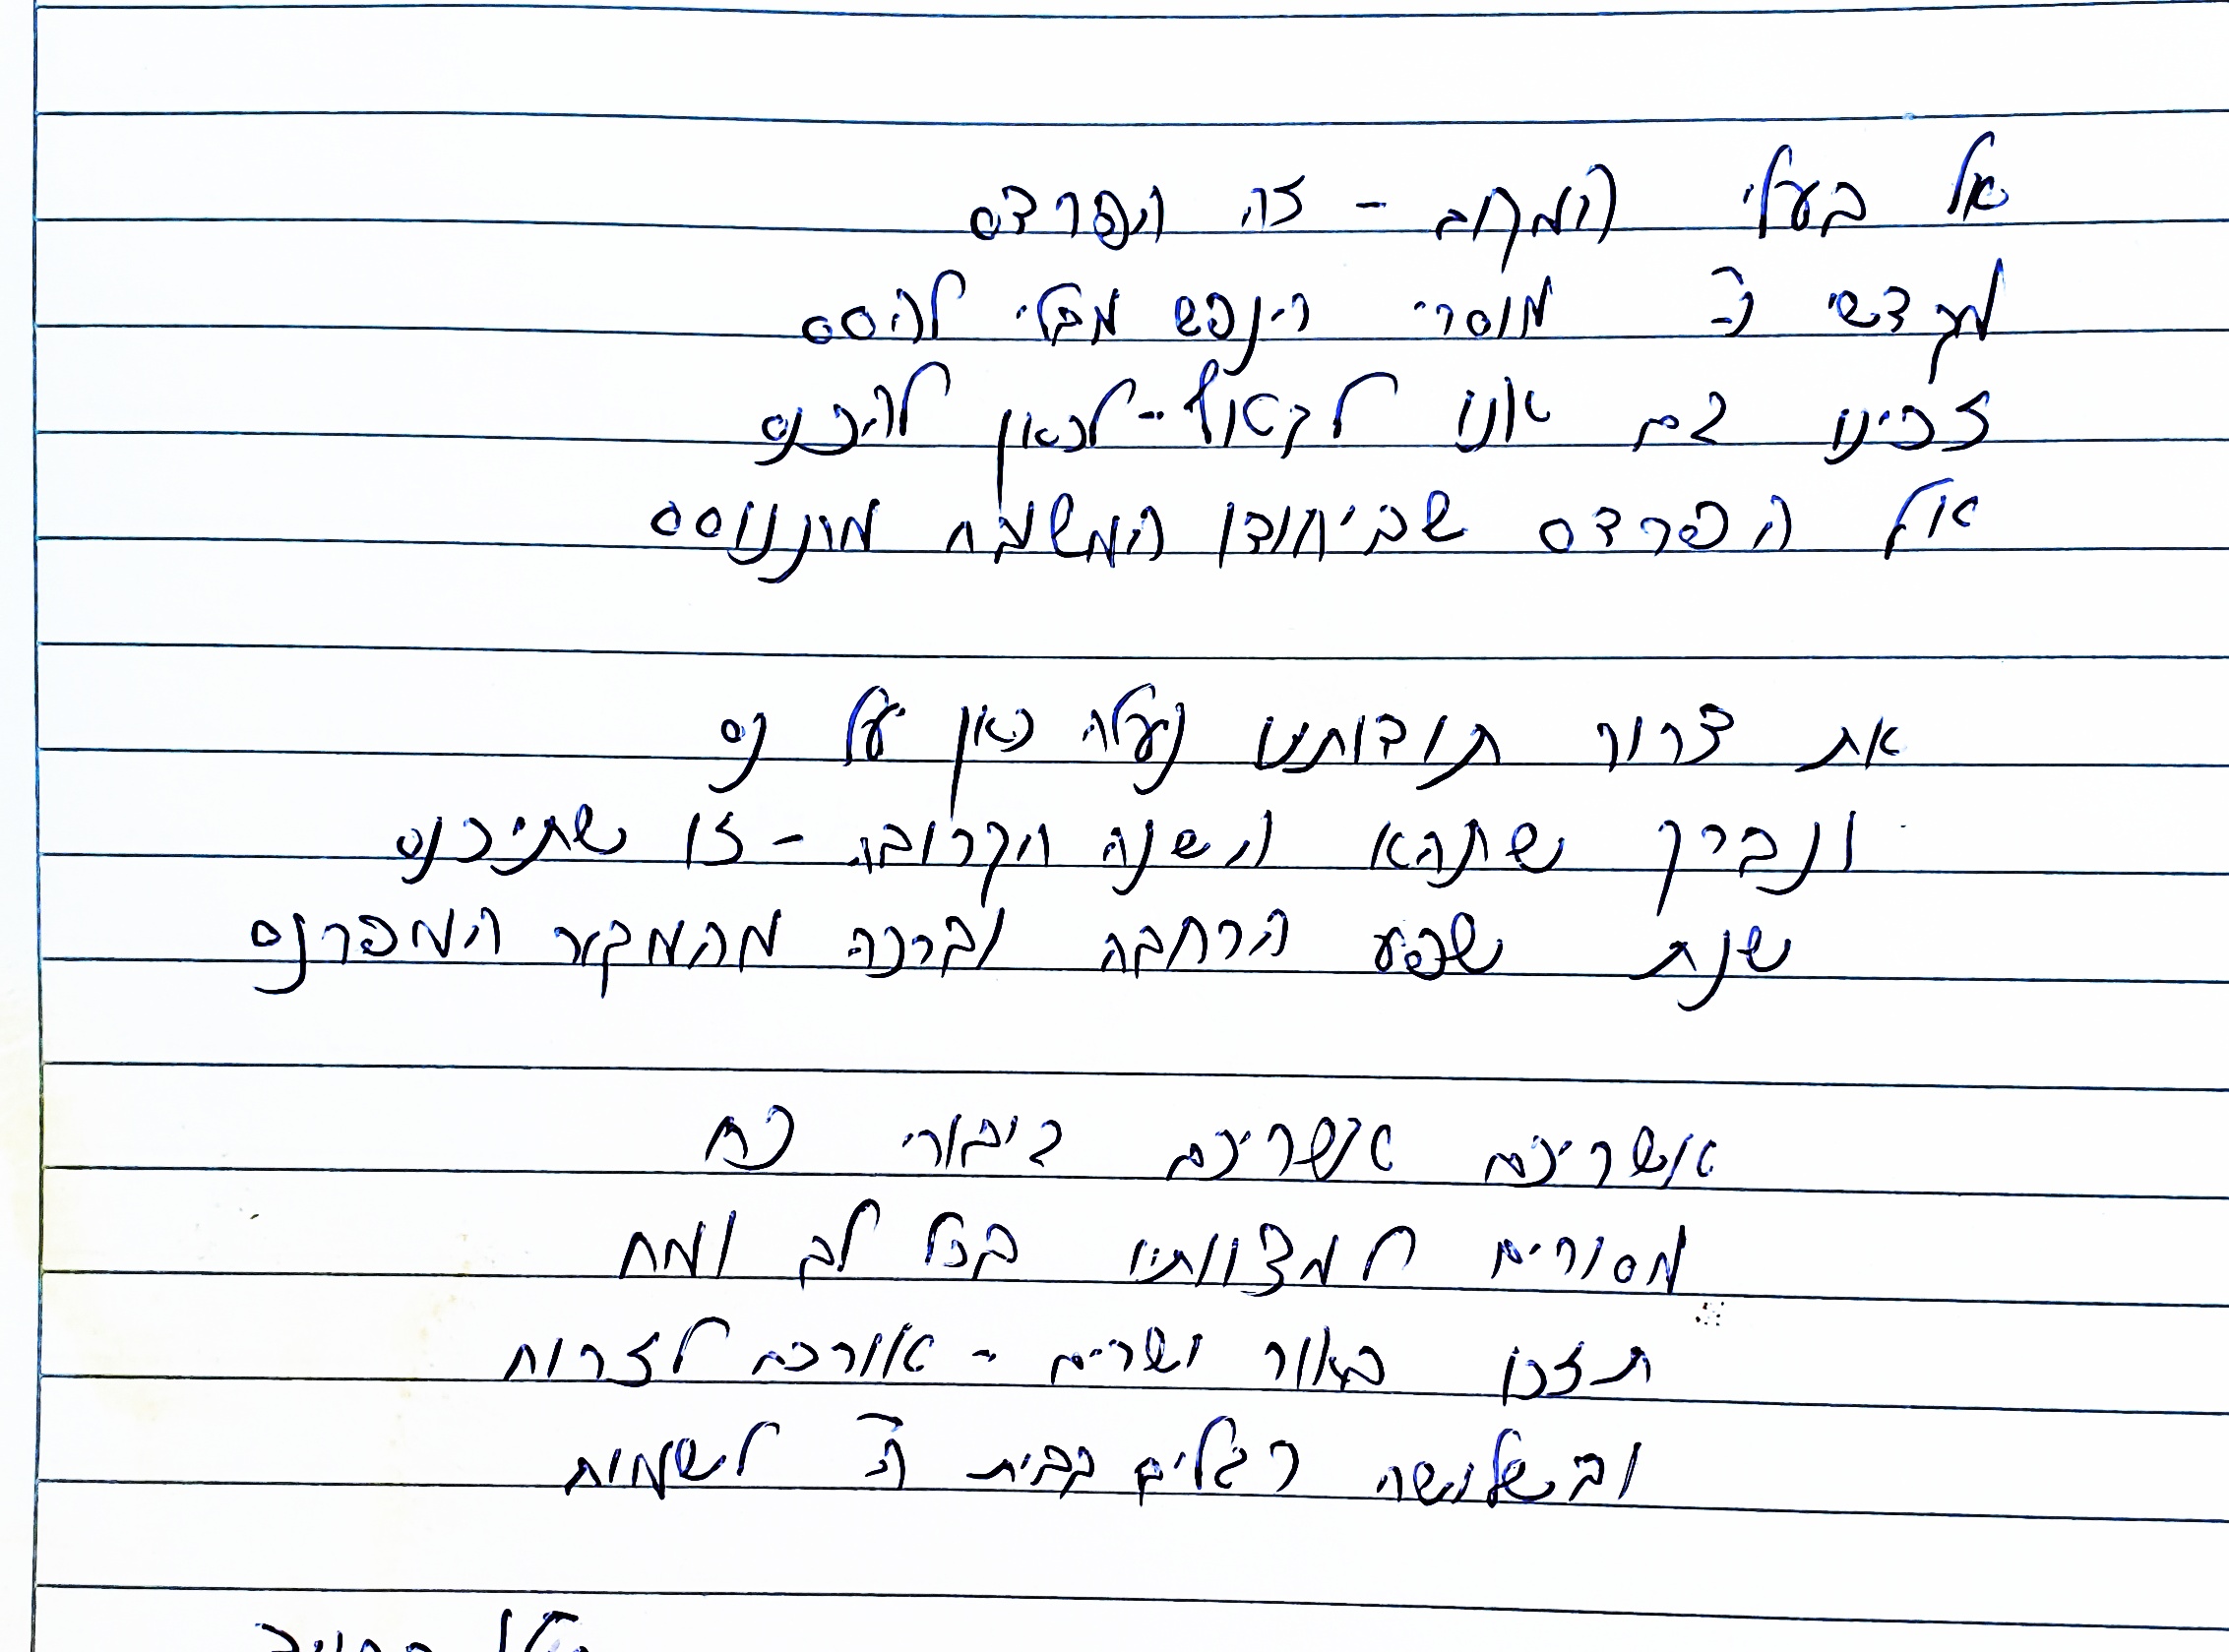 אל בעלי המקום - זה הפרדס
מקדשי ה' מוסרי הנפש מבלי להסס
זכינו גם אנו לקטוף - לכאן להיכנס
אל הפרדס שביחודו המשובח מתנוסס
את צרור תודותינו נעלה כאן על נס
ונברך שתהא השנה הקרובה - זו שתיכנס
שנת שפע הרחבה וברכה מהמקור המפרנס
אשריכם אשריכם גיבורי כח
מסורים למצוותיו בכל לב ומח
תזכו באור ושרים - אורכם לזרוח
ובשלושה רגלים בבית ה' לשמוח